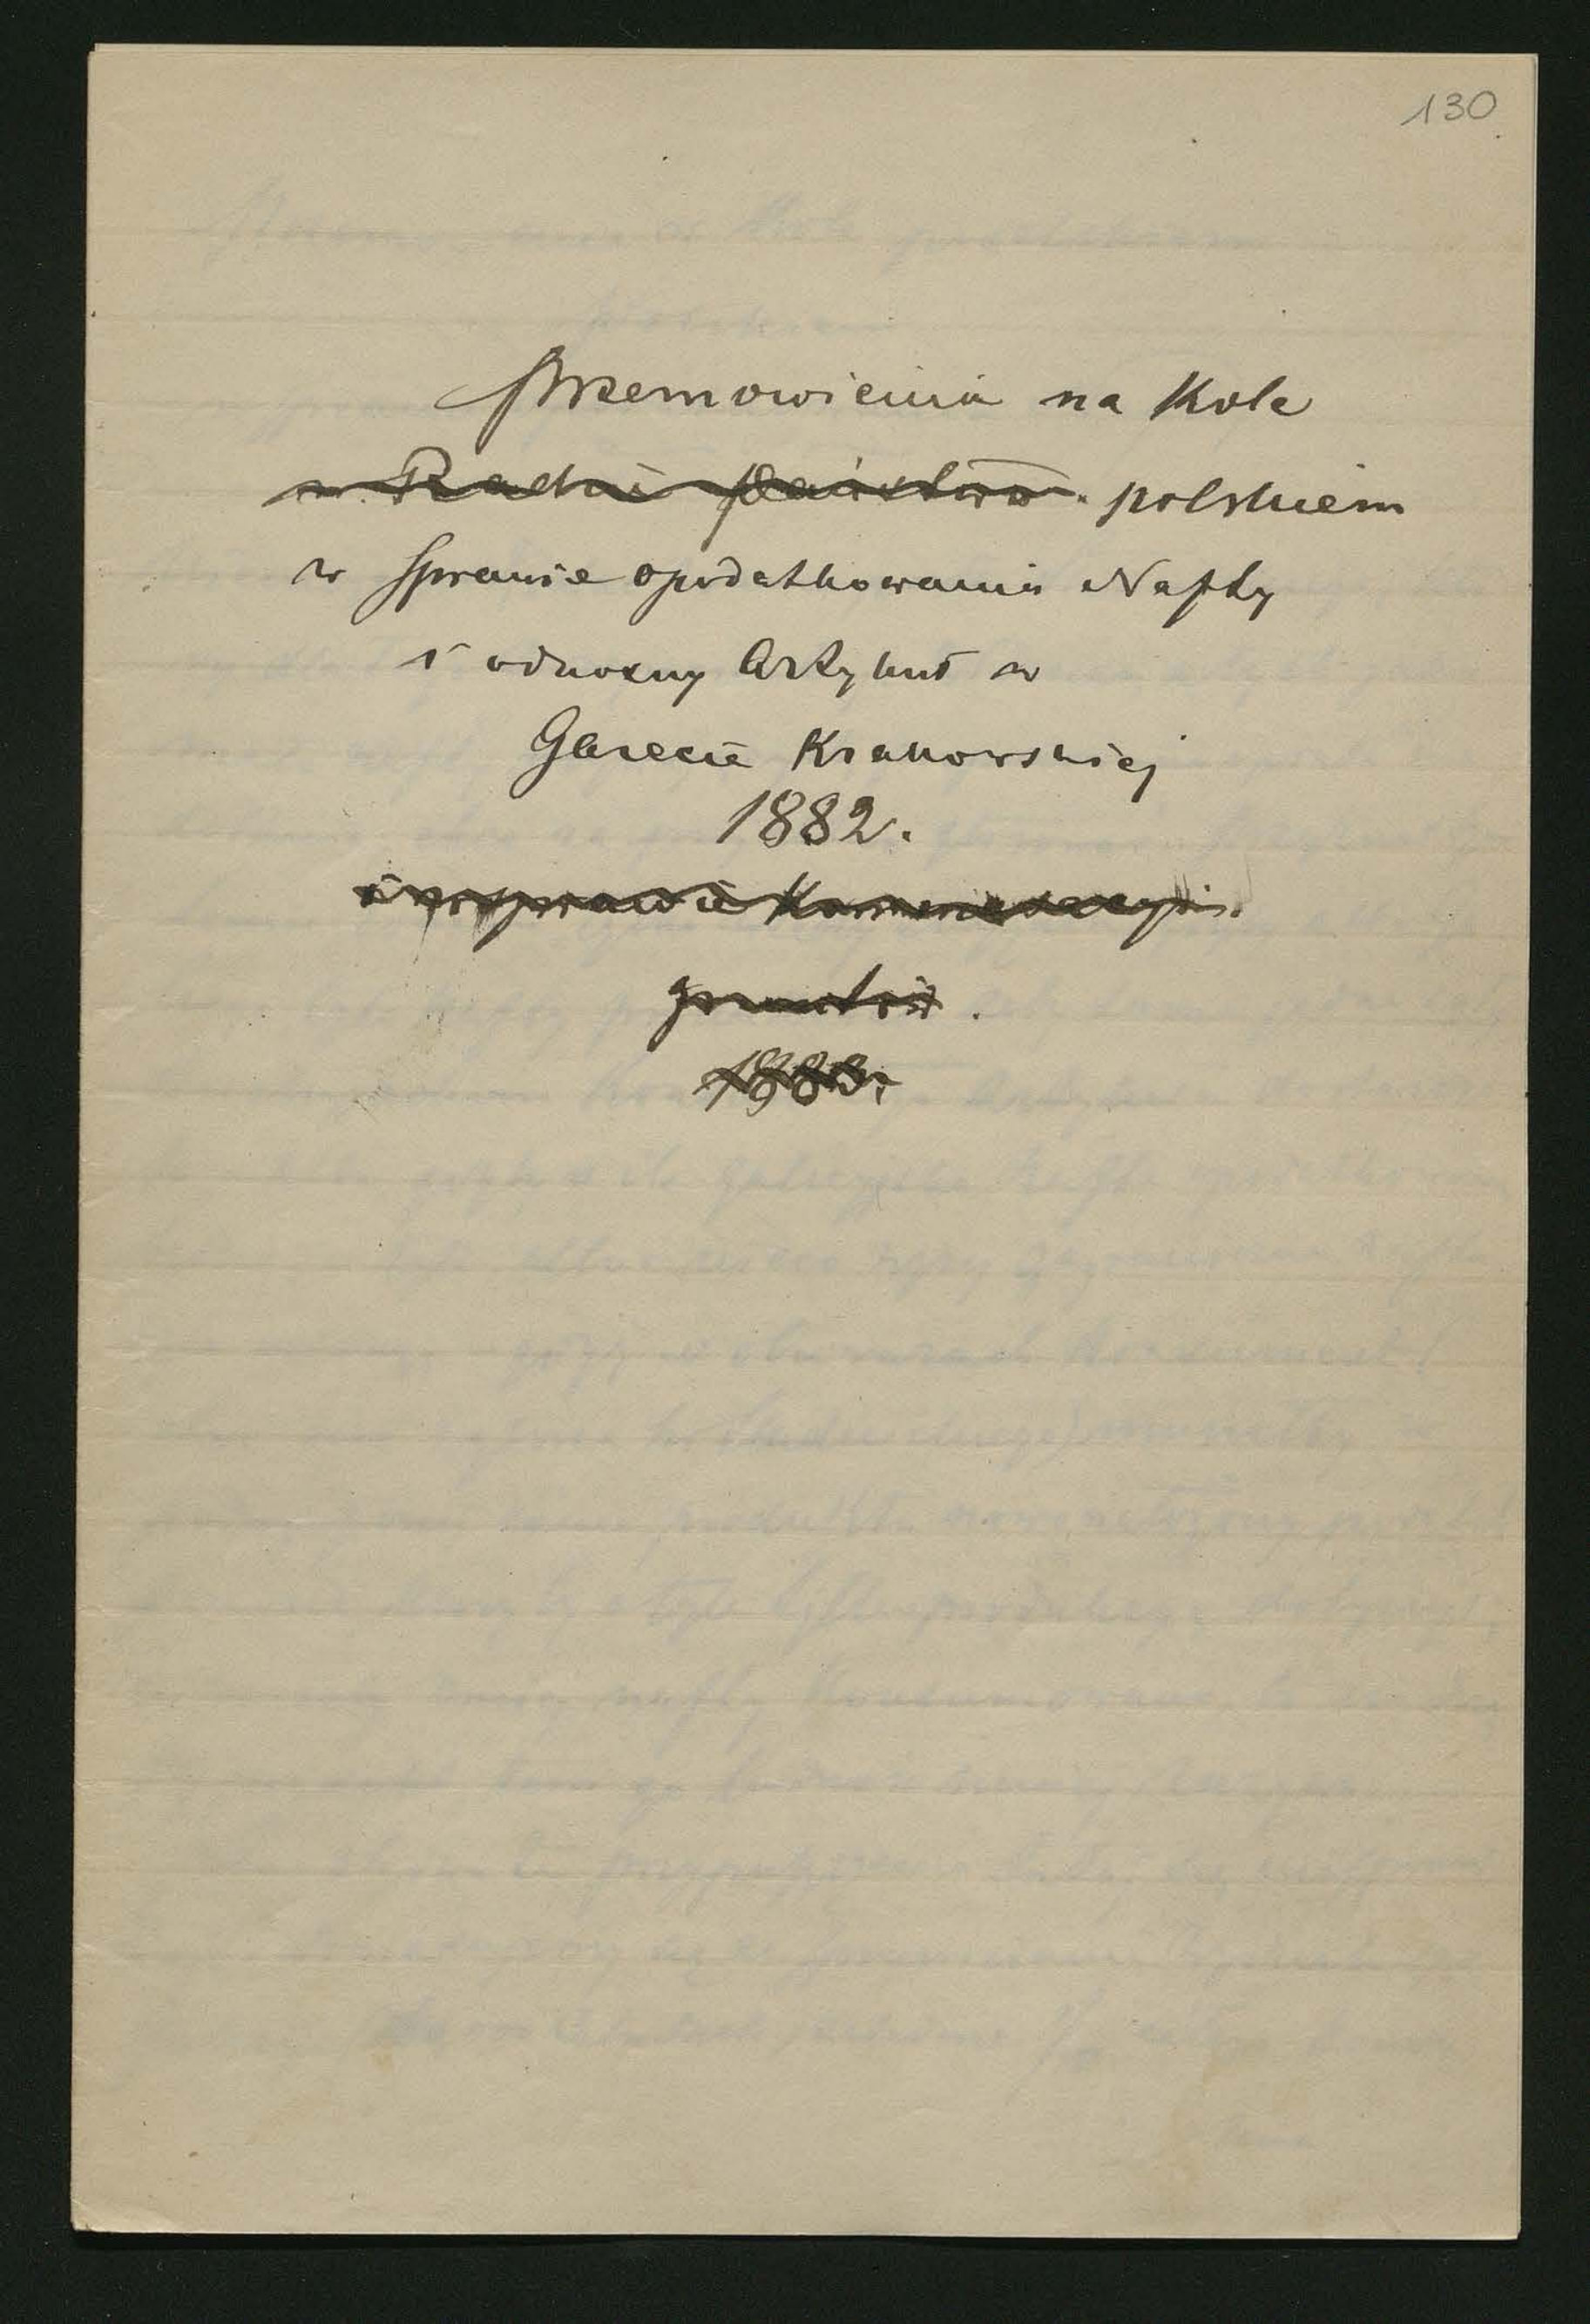 130
Przemowienia na Kole
w Radzie państwa polskiem
w Sprawie opodatkowania Nafty
i odnośny Artykuł w
Gazecie Krakowskiej
1882.
i w sprawie Komasacyi
gruntów.
1883.